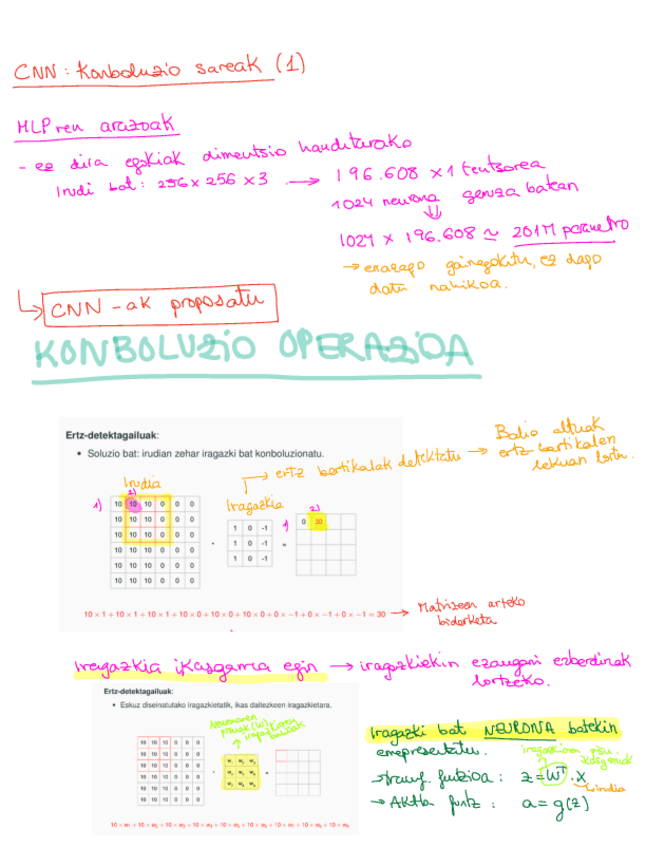 CNN: Konboluzio sareak (1)
MLP ren arazoak
- ez dira egokiak dimentsio handitarako
Irudi bat: 256 x 256 x 3 → 196.608 x 1 tentsorea
1024 neurona geruza batean
1024 x 196.608 ≃ 201M parametro
→ errazago gainegokitu, ez dago
datu nahikoa.
CNN-ak proposatu
KONBOLUZIO OPERAZIOA
Ertz-detektagailuak:
• Soluzio bat: irudian zehar iragazki bat konboluzionatu.
→ ertz bertikalak detektatu → Balio altuak
ertz bertikalen
lekuan lortu.
Irudia
Iragazkia
1) 2)
1) 2)
10 10 10 0 0 0
10 10 10 0 0 0
10 10 10 0 0 0
10 10 10 0 0 0
10 10 10 0 0 0
10 10 10 0 0 0
*
1 0 -1
1 0 -1
1 0 -1
=
0 30
10 × 1 + 10 × 1 + 10 × 1 + 10 × 0 + 10 × 0 + 10 × 0 + 0 × −1 + 0 × −1 + 0 × −1 = 30 → Matrizeen arteko
biderketa
Iragazkia ikasgarria egin → iragazkiekin ezaugarri ezberdinak
lortzeko.
Ertz-detektagailuak:
• Eskuz diseinatutako iragazkietatik, ikas daitezkeen iragazkietara.
Neuronaren
pisuak (w)
iragazkiaren
balioak
10 10 10 0 0 0
10 10 10 0 0 0
10 10 10 0 0 0
10 10 10 0 0 0
10 10 10 0 0 0
10 10 10 0 0 0
*
w₁ w₂ w₃
w₄ w₅ w₆
w₇ w₈ w₉
=
Iragazki bat NEURONA batekin
errepresentatu.
iragazkiaren pisu
ikasgarriak
→ transf. funtzioa: z = Wᵀ · x
irudia
→ Aktiba funtz: a = g(z)